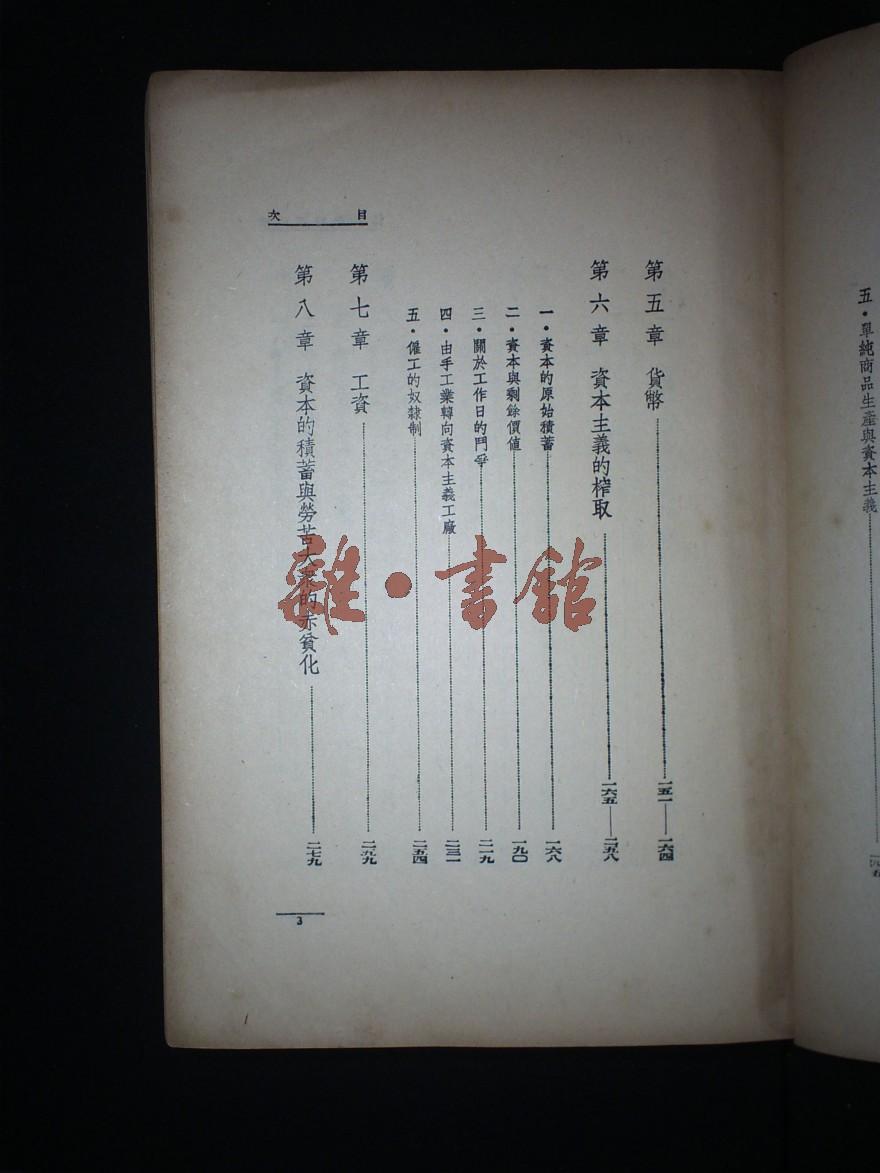 五・單純商品生產與資本主義
目次
第五章 貨幣 一五一——一六四
第六章 資本主義的榨取 一六五——二五八
一・資本的原始積蓄 一六八
二・資本與剩餘價值 一九〇
三・關於工作日的鬥爭 二一九
四・由手工業轉向資本主義工廠 二三一
五・僱工的奴隸制 二五四
第七章 工資
第八章 資本的積蓄與勞苦大衆的赤貧化 二七九
3
雜・書館